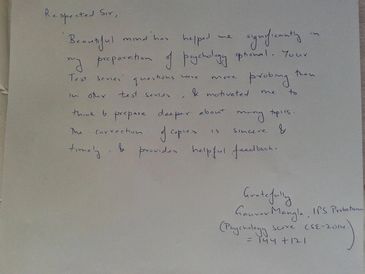 Respected Sir,
'Beautiful mind' has helped me significantly in
my preparation of psychology optional. Your
Test series' questions were more probing than
in other test series, & motivated me to
think & prepare deeper about many topics.
The correction of copies is sincere &
timely, & provides helpful feedback.
Gratefully
Gaurav Mangla, IPS Probationer
(Psychology score CSE-2014
= 144 + 121)